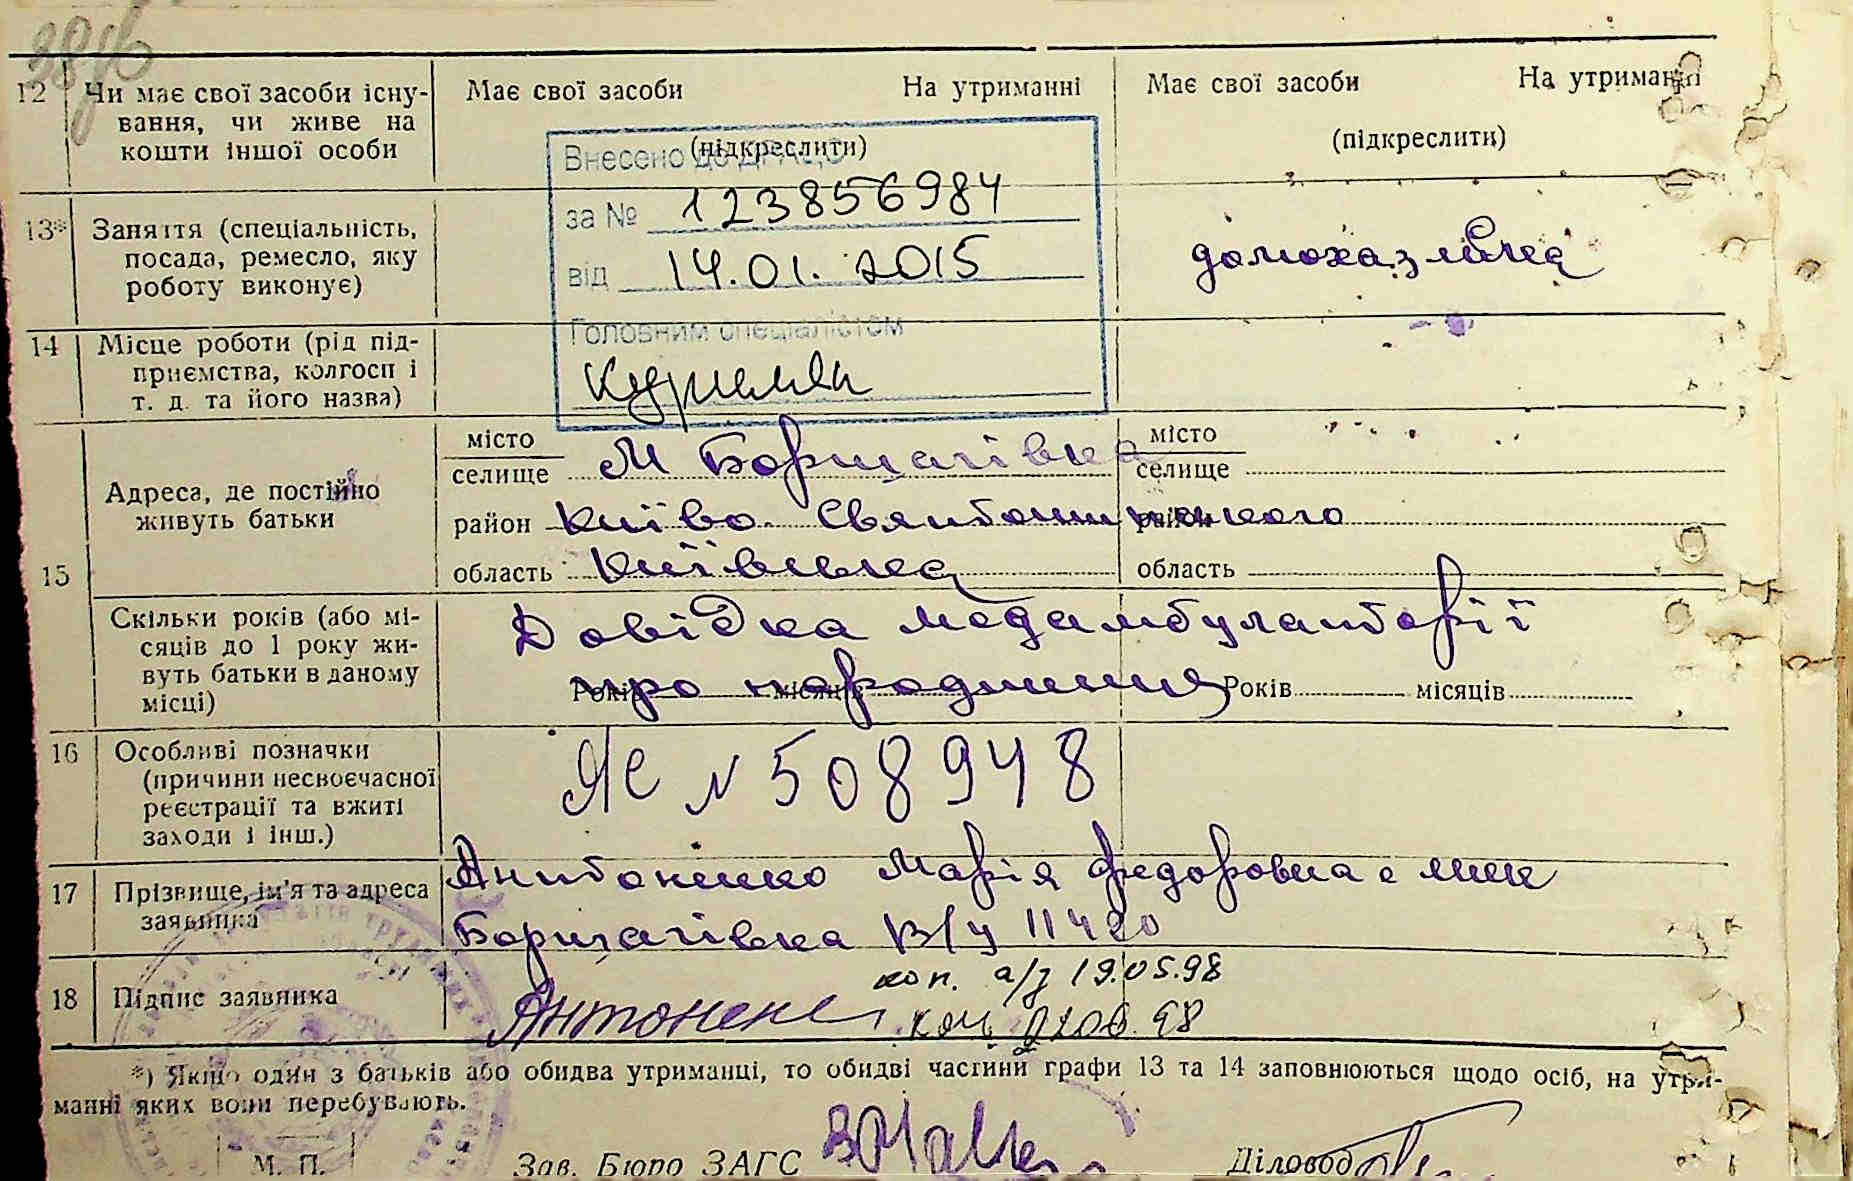 12 Чи має свої засоби існу- Має свої засоби На утриманні Має свої засоби На утриманні
вання, чи живе на
кошти іншої особи (підкреслити) (підкреслити)
Внесено до ДРАЦС
за № 123856984
від 14.01.2015
Головним спеціалістом
13* Заняття (спеціальність,
посада, ремесло, яку
роботу виконує) домохазяйка
14 Місце роботи (рід під-
приємства, колгосп і
т. д. та його назва)
15 Адреса, де постійно
живуть батьки
місто
селище М Борщагівка
район Києво. Святошинського
область Київська
місто
селище
район
область
Скільки років (або мі-
сяців до 1 року жи-
вуть батьки в даному
місці)
Довідка медамбулаторії
про народження
Років місяців Років місяців
16 Особливі позначки
(причини несвоєчасної
реєстрації та вжиті
заходи і інш.)
ЯЕ № 508948
17 Прізвище, ім'я та адреса
заявника
Антоненко Марія Федоровна с
Борщагівка В/ч 11420
18 Підпис заявника
Антонен
коп. а/з 19.05.98
98
*) Якщо один з батьків або обидва утриманці, то обидві частини графи 13 та 14 заповнюються щодо осіб, на утри-
манні яких вони перебувають.
М. П. Зав. Бюро ЗАГС Діловод